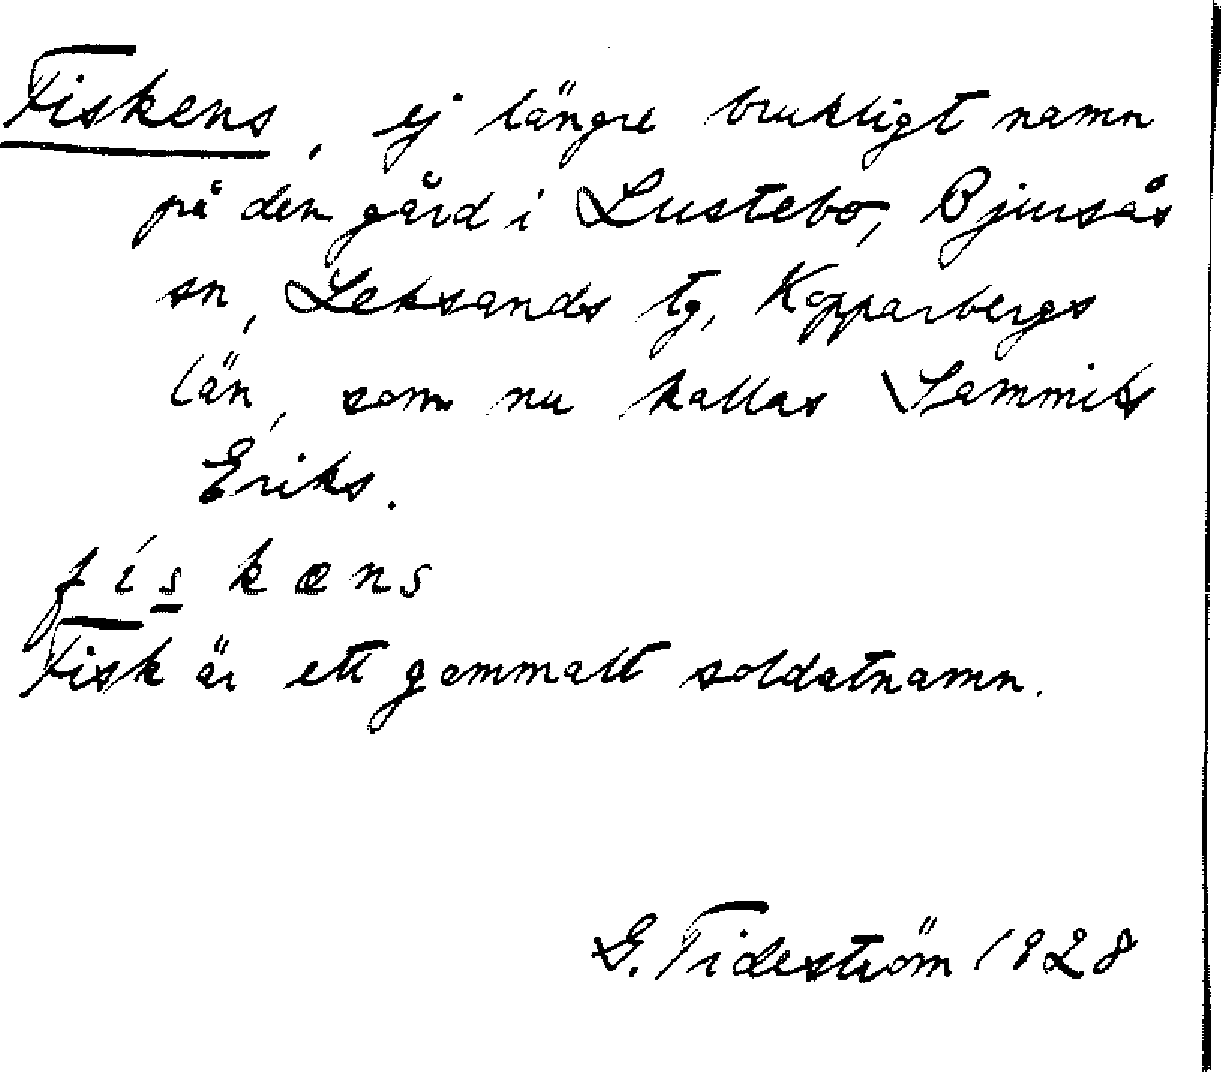 Fiskens, ej längre brukligt namn
på den gård i Lustebo, Bjursås
sn, Leksands tg, Kopparbergs
län, som nu kallas Sammils
Eriks.
fískæns
Fisk är ett gammalt soldatnamn.
G. Tideström 1928